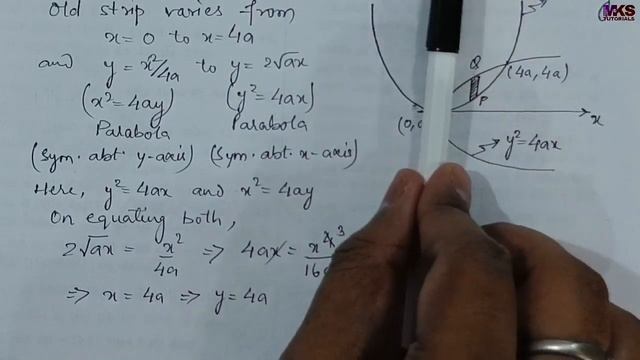 Old strip varies from
x = 0 to x = 4a
and y = x²/4a to y = 2√ax
(x² = 4ay) (y² = 4ax)
Parabola Parabola
(Sym. abt. y-axis) (Sym. abt. x-axis)
Here, y² = 4ax and x² = 4ay
On equating both,
2√ax = x²/4a ⇒ 4ax =
⇒ x = 4a ⇒ y = 4a
Q
P
(4a, 4a)
x
y² = 4ax
MKS
TUTORIALS